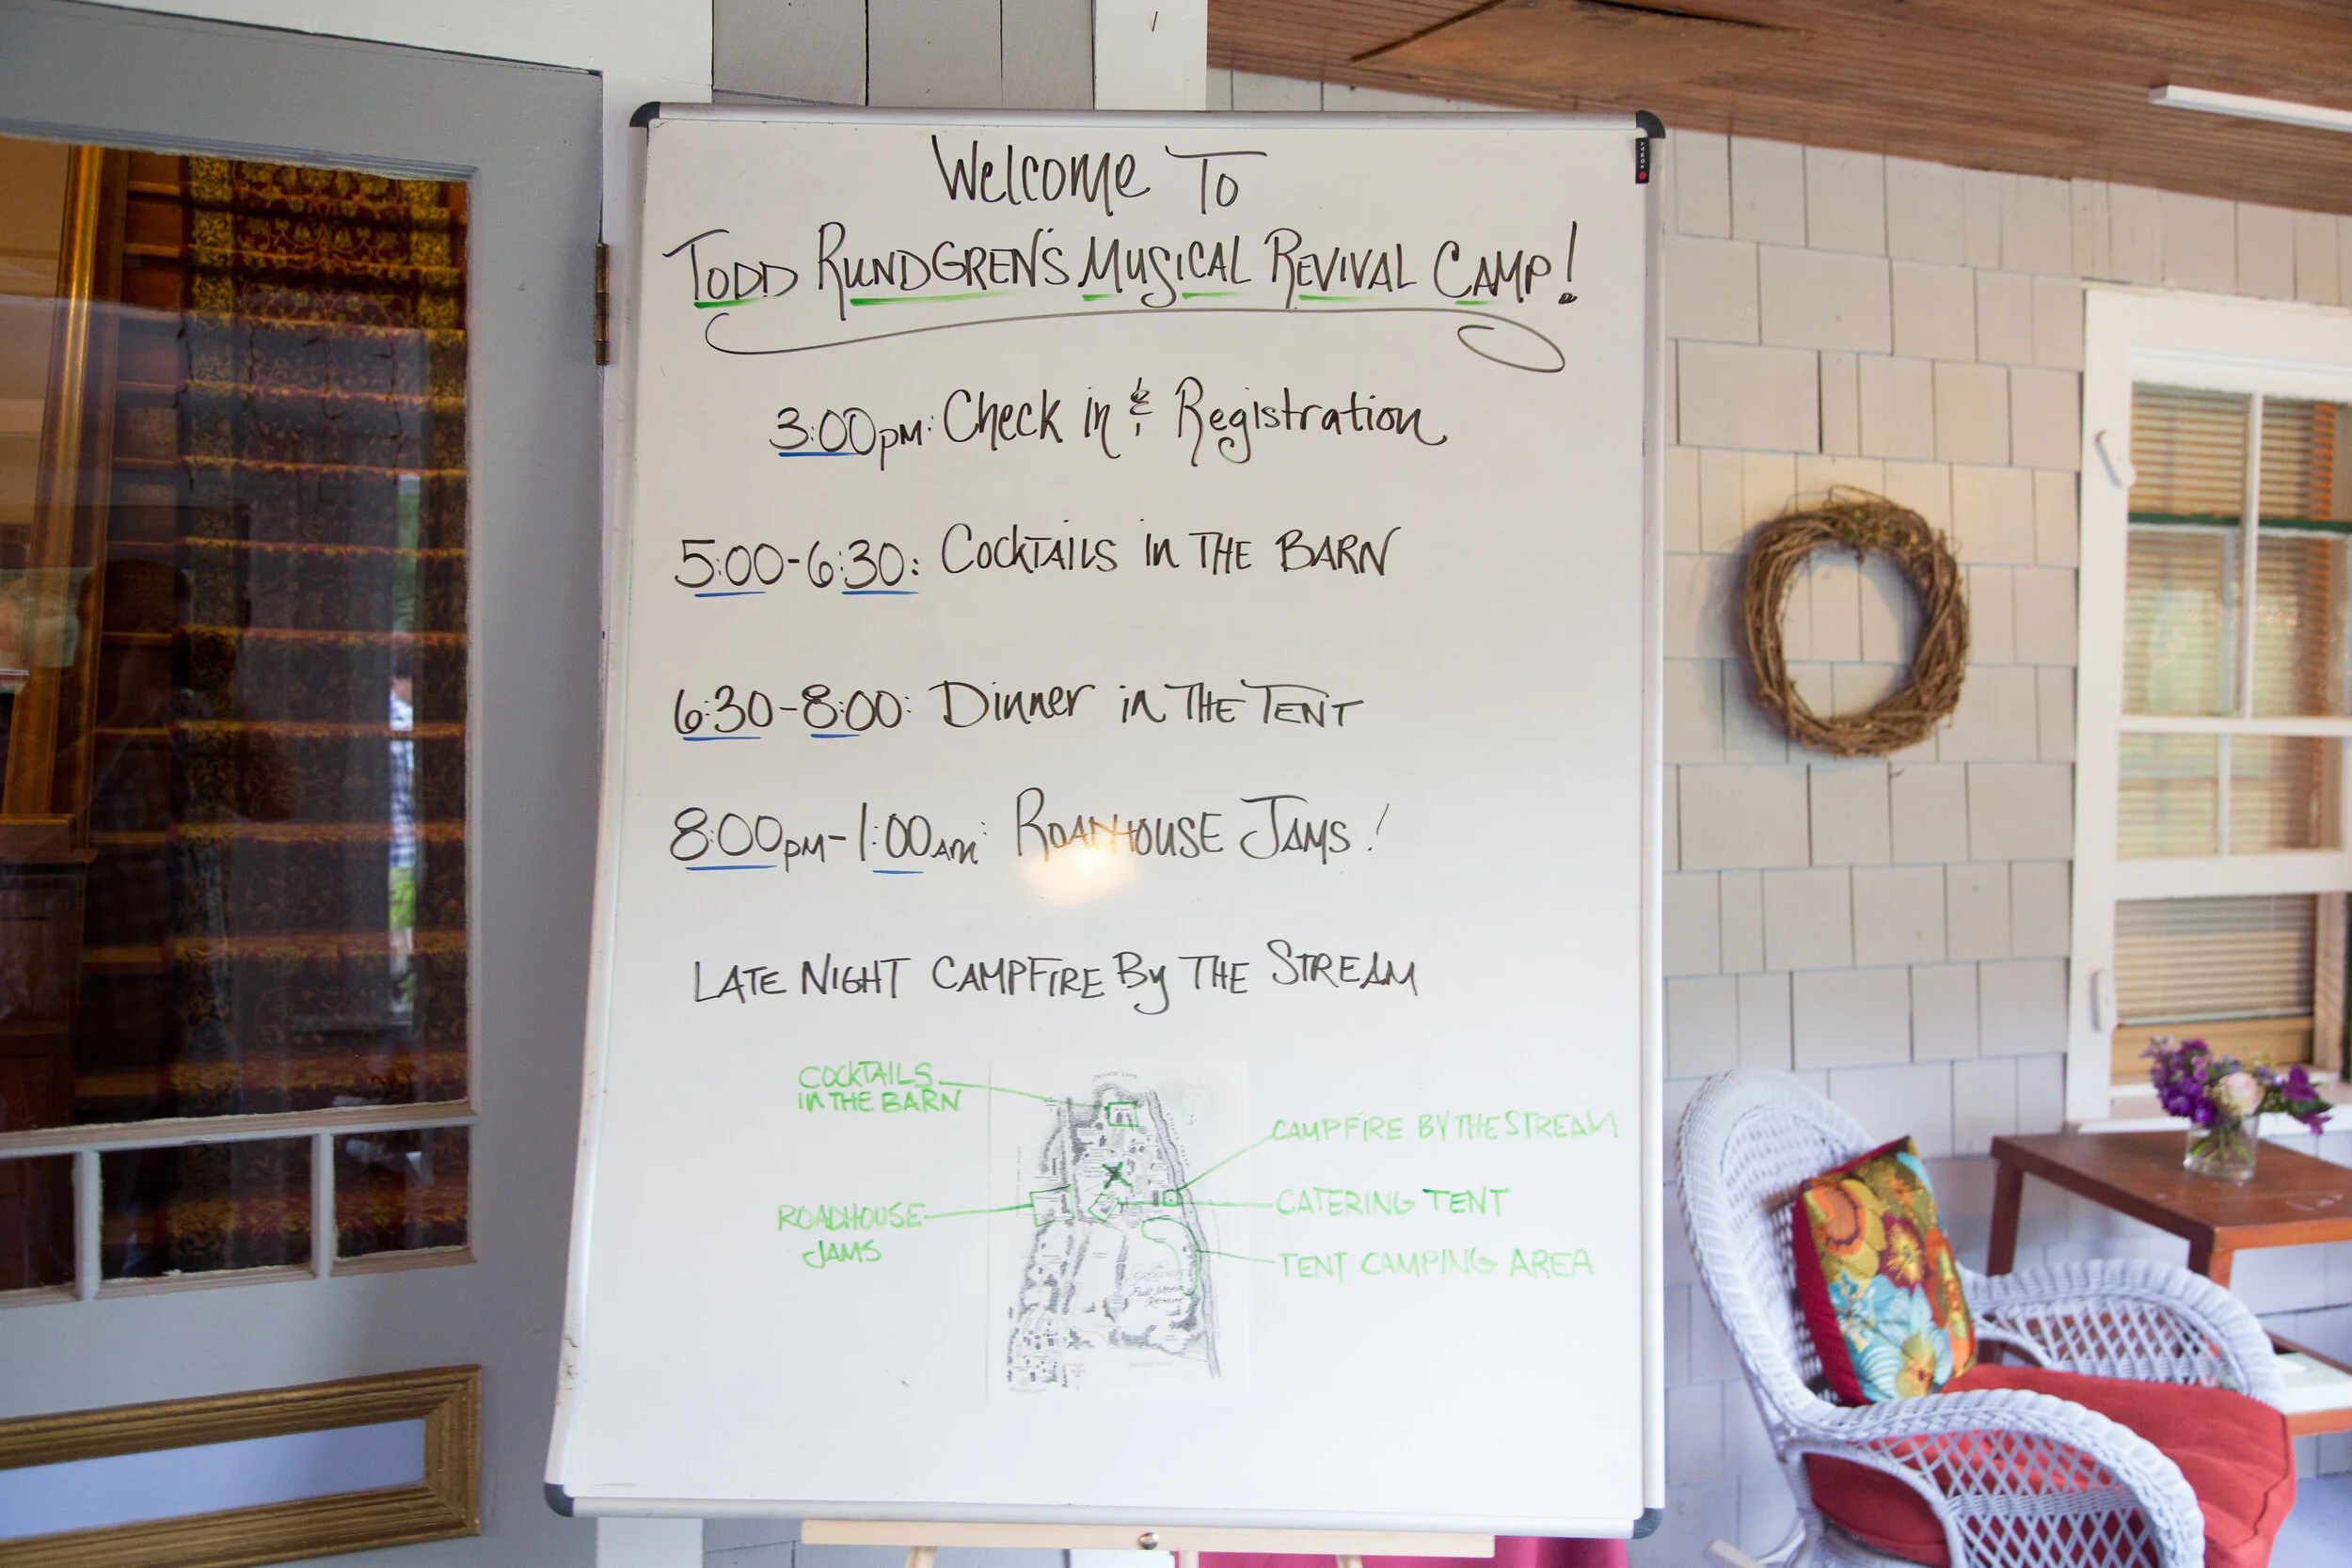 Welcome To
TODD RUNDGREN'S MUSICAL REVIVAL CAMP!
3:00PM: Check in & Registration
5:00-6:30: COCKTAILS in THE BARN
6:30-8:00: Dinner in THE TENT
8:00PM-1:00AM: ROADHOUSE JAMS!
LATE NIGHT CAMPFIRE By THE STREAM
COCKTAILS
in THE BARN
CAMPFIRE BY THE STREAM
ROADHOUSE
JAMS
CATERING TENT
TENT CAMPING AREA